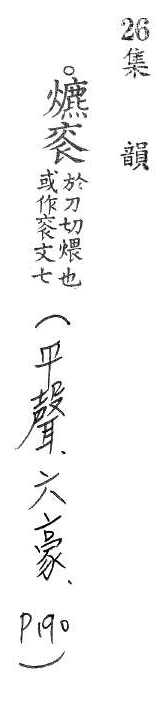 26 集韻
。爊
於刀切煨也
或作 文七
(平聲、六豪、P190)